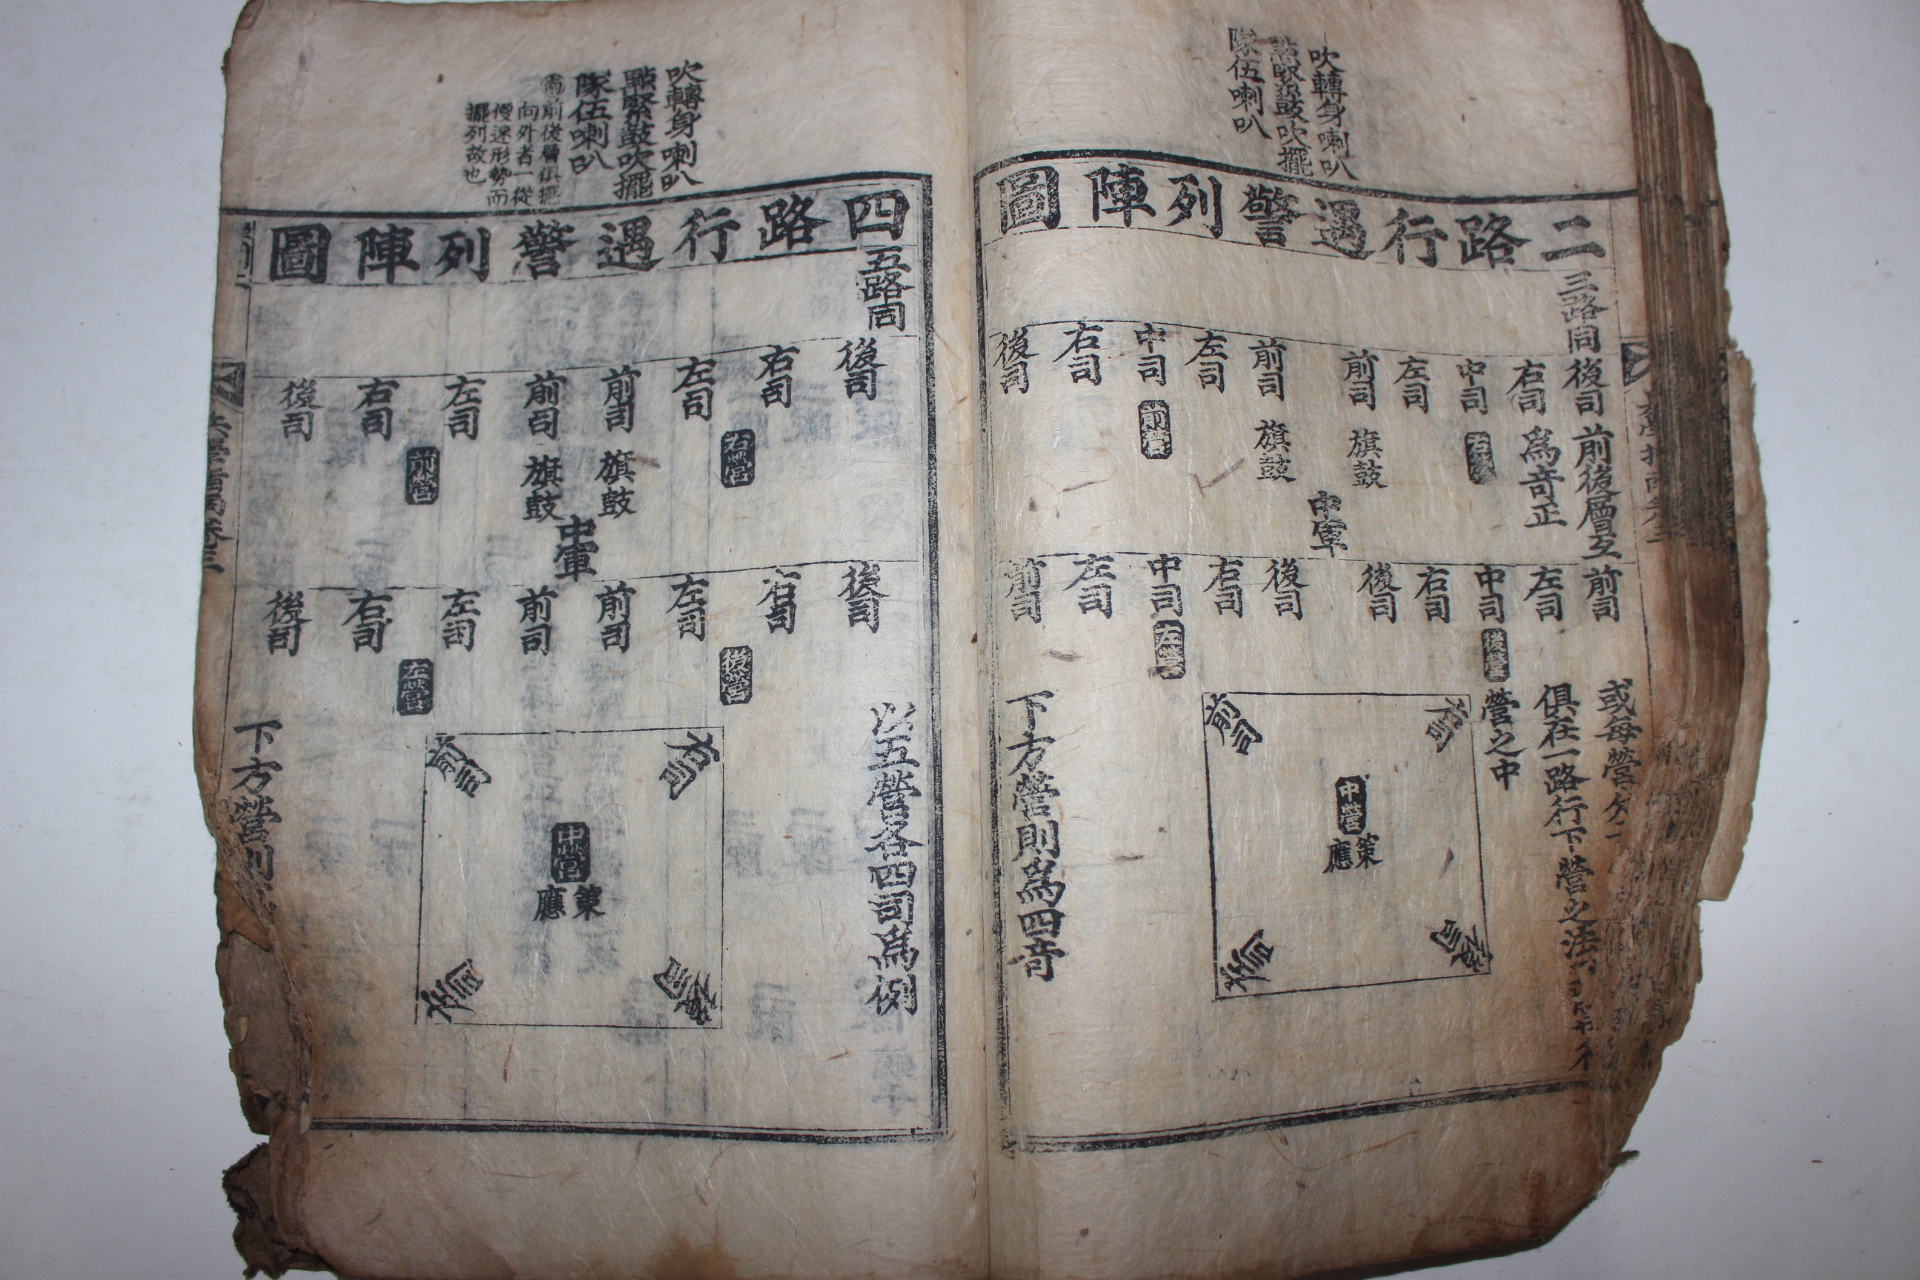 吹轉身喇叭
點緊鼓吹擺
隊伍喇叭
二路行遇警列陣圖
三路同
後司 右司 中司 左司 前司 前司 左司 中司 右司 後司
前後層互
爲奇正
右營 旗鼓 旗鼓 前營
中軍
前司 左司 中司 右司 後司 後司 右司 中司 左司 前司
後營 左營
或每營分
俱在一路行下營之法
營之中
右司 前司
中營
策應
後司 左司
下方營則爲四奇
吹轉身喇叭
點緊鼓吹擺
隊伍喇叭
前後層俱擺
向外者一從
慢速形勢而
擺列故也
四路行遇警列陣圖
五路同
後司 右司 左司 前司 前司 左司 右司 後司
右營 旗鼓 旗鼓 前營
中軍
後司 右司 左司 前司 前司 左司 右司 後司
後營 左營
以五營各四司爲例
右司 前司
中營
策應
後司 左司
下方營則
兵學指南卷三